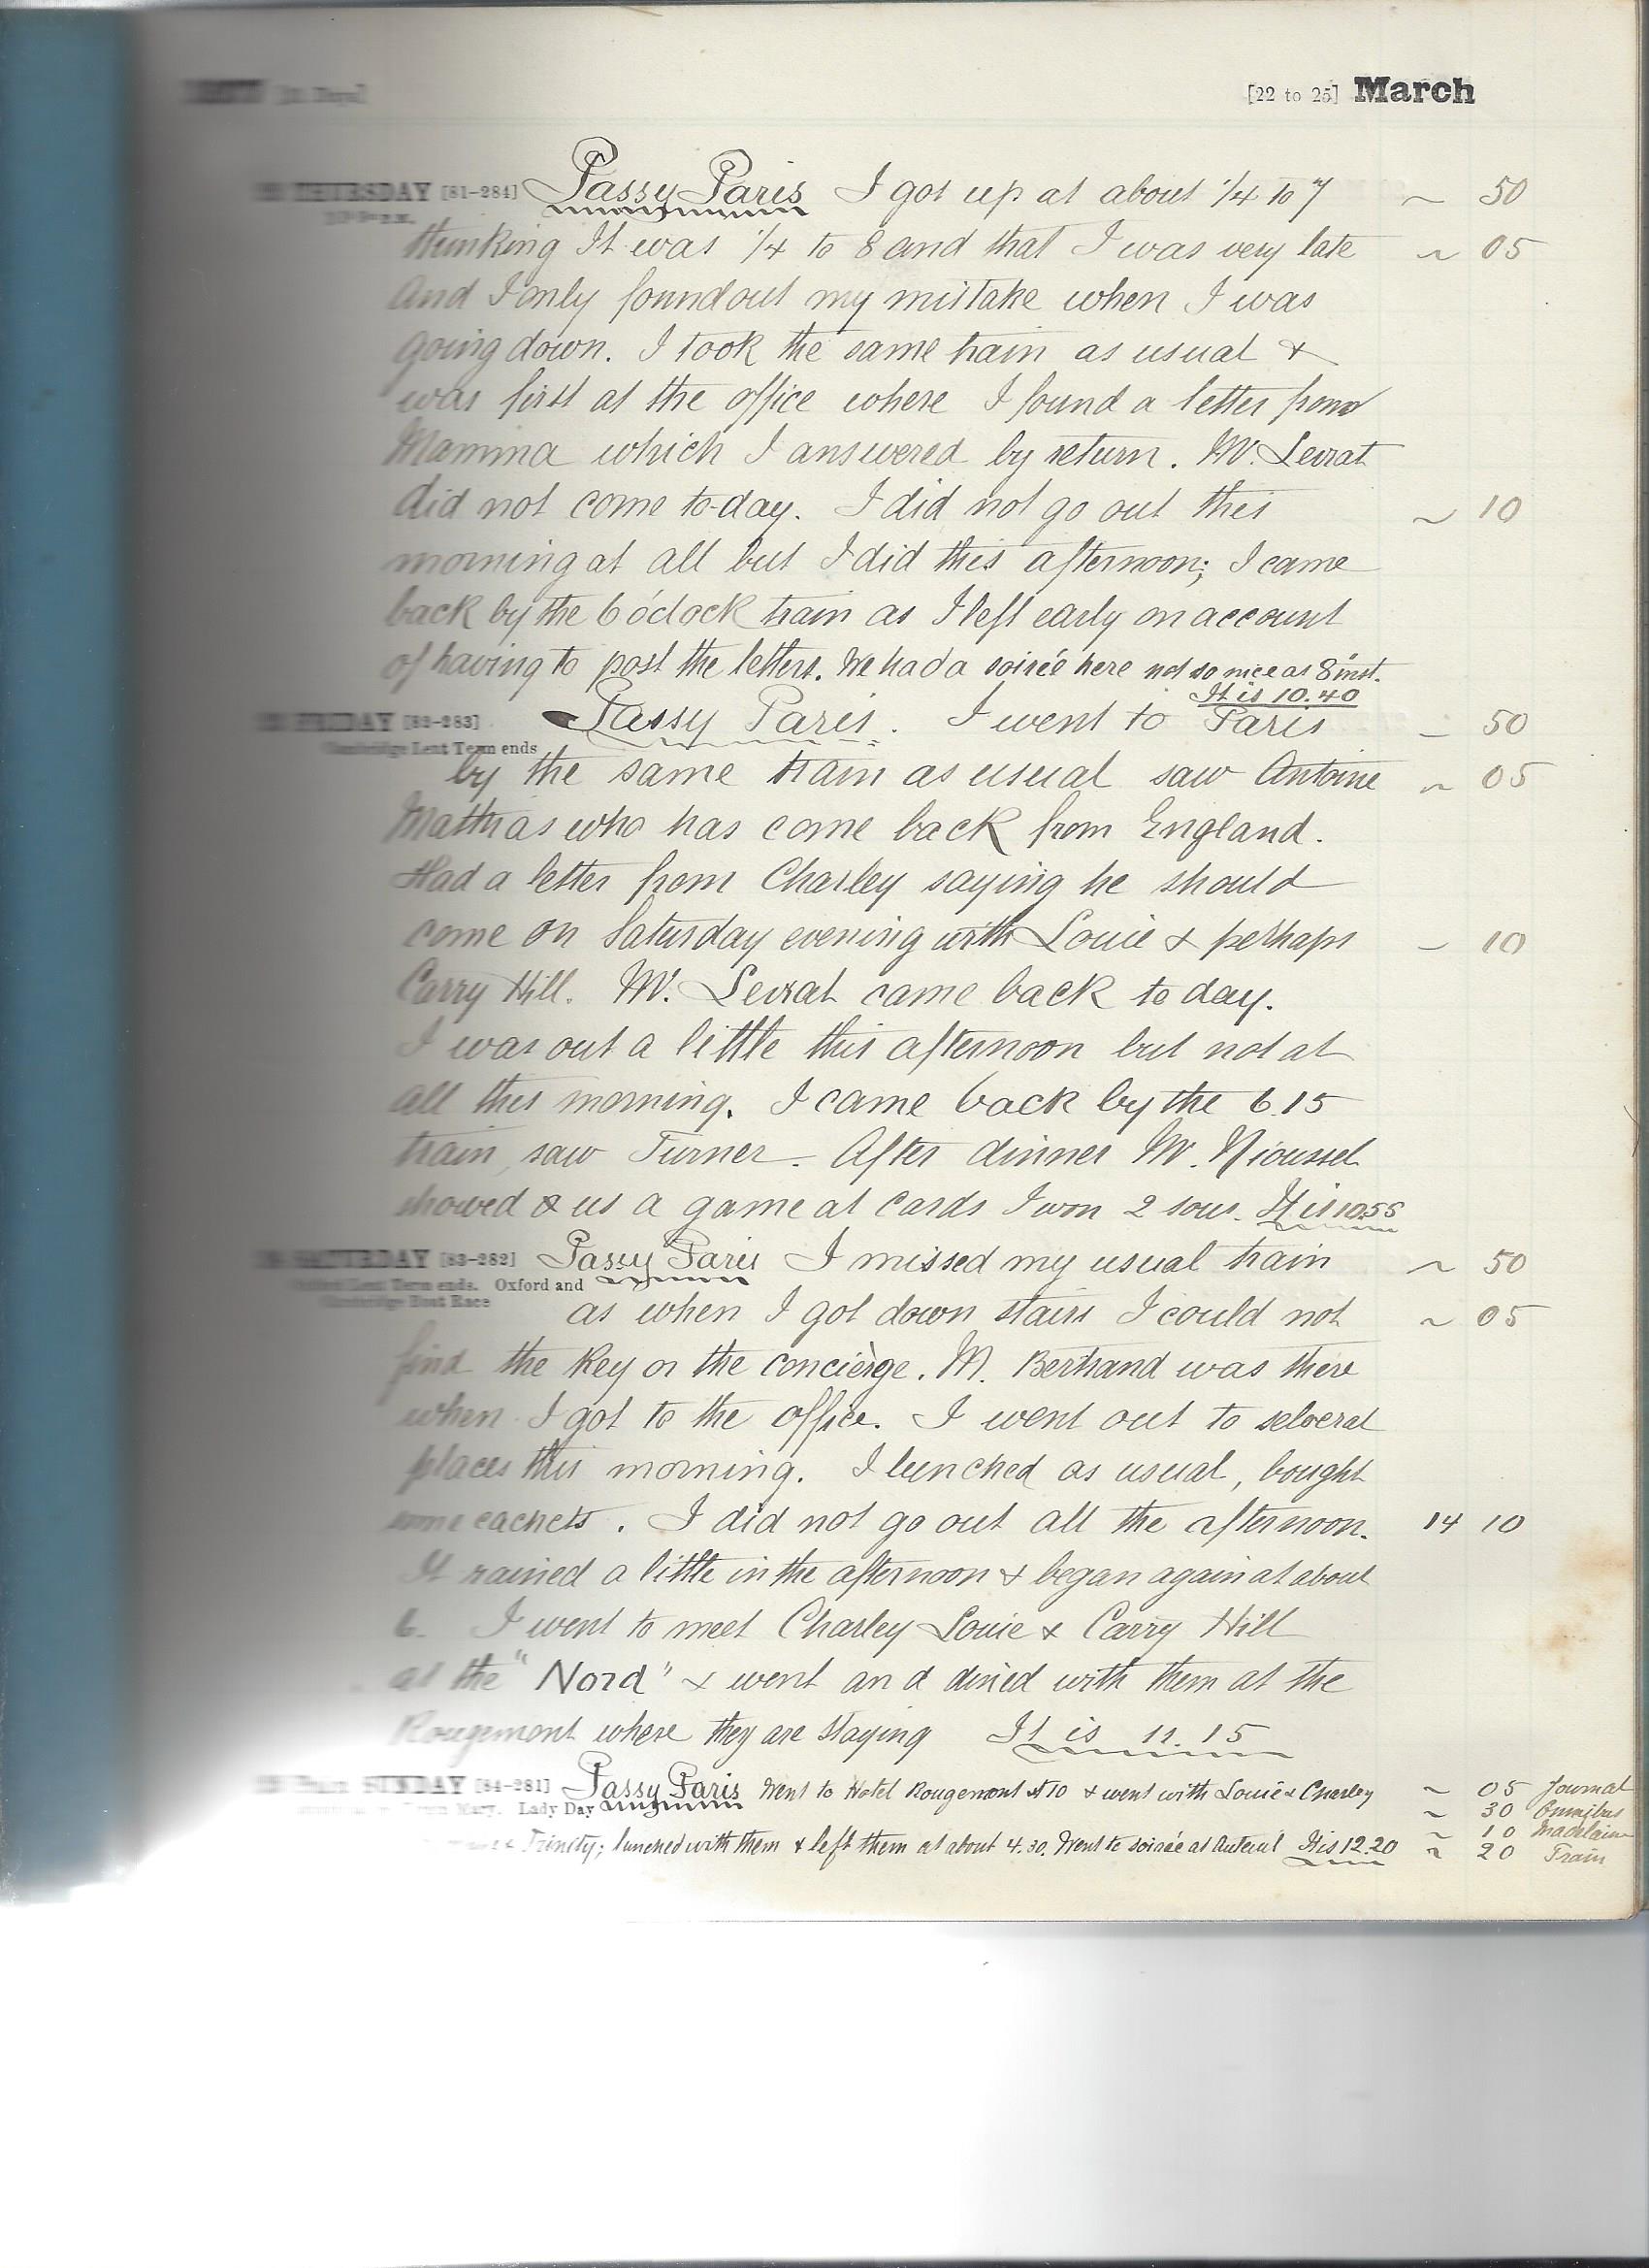 [22 to 25] March
THURSDAY [81-284] Passy Paris I got up at about 1/4 to 7 ~ 50
thinking It was 1/4 to 8 and that I was very late ~ 05
And I only found out my mistake when I was
going down. I took the same train as usual &
was first at the office where I found a letter from
Mamma which I answered by return. Mr. Levrat
did not come to-day. I did not go out this ~ 10
morning at all but I did this afternoon; I came
back by the 6 o'clock train as I left early on account
of having to post the letters. We had a soirée here not so nice as 8" inst.
It is 10.40
FRIDAY [82-283] Passy Paris. I went to Paris - 50
Cambridge Lent Term ends
by the same train as usual saw Antoine ~ 05
Mathias who has come back from England.
Had a letter from Charley saying he should
come on Saturday evening with Louie & perhaps - 10
Carry Hill. Mr. Levrat came back to day.
I was out a little this afternoon but not at
all this morning. I came back by the 6.15
train, saw Turner. After dinner Mr. Nioussel
showed us a game at cards I won 2 sous. It is 10.55
SATURDAY [83-282] Passy Paris I missed my usual train ~ 50
Oxford Lent Term ends. Oxford and
Cambridge Boat Race
as when I got down stairs I could not ~ 05
find the key or the concièrge. M. Bertrand was there
when I got to the office. I went out to selveral
places this morning. I lunched as usual, bought
some cachets. I did not go out all the afternoon. 14 10
It rained a little in the afternoon & began again at about
6. I went to meet Charley Louie & Carry Hill
at the "Nord" & went and dined with them at the
Rougemont where they are staying It is 11.15
SUNDAY [84-281] Passy Paris Went to Hotel Rougemont at 10 & went with Louie & Charley ~ 05 Journal
Mary. Lady Day ~ 30 Omnibus
~ 10 Madelaine
Trinity; lunched with them & left them at about 4.30. Went to soirée at Auteuil It is 12.20 ~ 20 Train